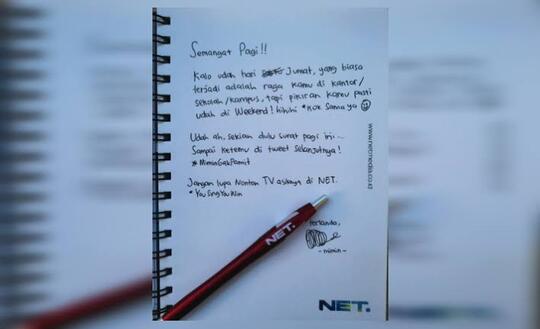 Semangat Pagi!!
Kalo udah hari Jumat, yang biasa
terjadi adalah raga kamu di kantor/
sekolah/kampus, tapi pikiran kamu pasti
udah di Weekend! hihihi *Kok sama ya
Udah ah, sekian dulu surat pagi ini...
Sampai ketemu di tweet selanjutnya!
#MiminGakPamit
Jangan lupa Nonton TV asiknya di NET.
*YouSingYouWin
tertanda,
-mimin-
NET.
NET.
www.netmedia.co.id